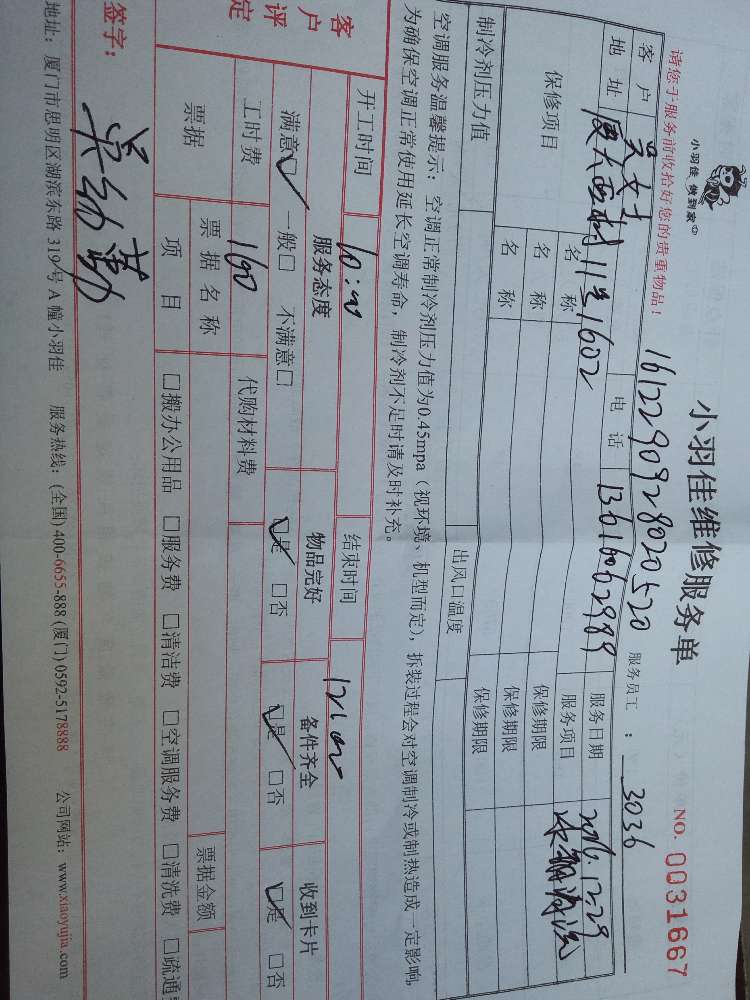 小羽佳 做到家
小羽佳维修服务单
NO. 0031667
请您于服务前收拾好您的贵重物品！
1612290928020520
服务员工 ： 3036
客 户 吴女士 电 话 13616062989 服务日期 2016.12.29
地 址 厦大西村11号1602 服务项目
保修项目 名 称 保修期限
名 称 保修期限
名 称 保修期限
制冷剂压力值 出风口温度
空调服务温馨提示：空调正常制冷剂压力值为0.45mpa（视环境、机型而定），拆装过程会对空调制冷或制热造成一定影响，
为确保空调正常使用延长空调寿命，制冷剂不足时请及时补充。
客户评定
开工时间 10:00 结束时间 12:00
服务态度 物品完好 备件齐全 收到卡片
满意☑ 一般□ 不满意□ ☑是 □否 ☑是 □否 ☑是 □否
工时费 160 代购材料费
票据 票 据 名 称 票据金额
项 目 □搬办公用品 □服务费 □清洁费 □空调服务费 □清洗费 □疏通
签字：
地址：厦门市思明区湖滨东路 319 号 A 幢小羽佳 服务热线：(全国) 400-6655-888 (厦门) 0592-5178888 公司网站：www.xiaoyujia.com